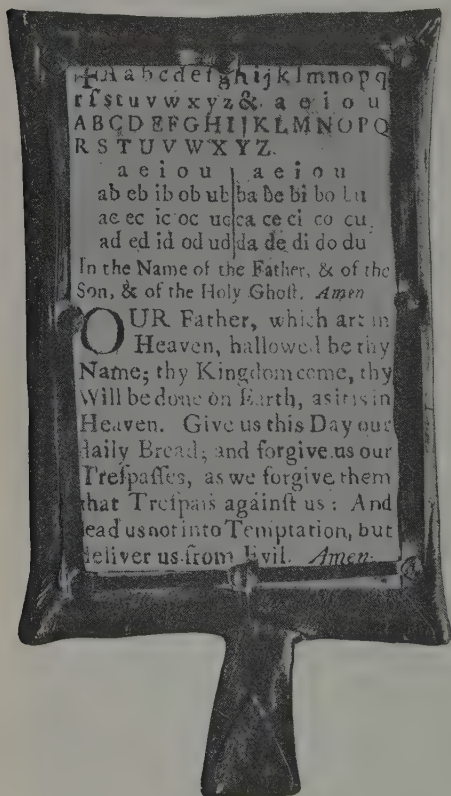 ✠Aabcdefghijklmnopq
rſstuvwxyz& a e i o u
ABCDEFGHIJKLMNOPQ
RSTUVWXYZ.
a e i o u | a e i o u
ab eb ib ob ub | ba be bi bo bu
ac ec ic oc uc | ca ce ci co cu
ad ed id od ud | da de di do du
In the Name of the Father, & of the
Son, & of the Holy Ghoſt. Amen
OUR Father, which art in
Heaven, hallowed be thy
Name; thy Kingdom come, thy
Will be done on Earth, as it is in
Heaven. Give us this Day our
daily Bread; and forgive us our
Treſpaſſes, as we forgive them
that Treſpaſs againſt us: And
lead us not into Temptation, but
deliver us from Evil. Amen.